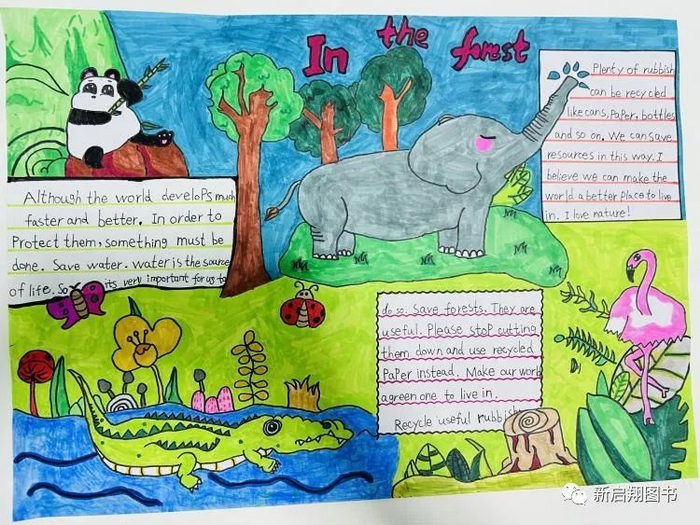 In the forest
Although the world develops much
faster and better. In order to
Protect them, something must be
done. Save water. water is the source
of life. So its very important for us to
do so. Save forests. They are
useful. Please stop cutting
them down and use recycled
PaPer instead. Make our work
agreen one to live in.
Recycle useful rubbish
Plenty of rubbish
can be recycled
like cans, PaPer, bottles
and so on. We can save
resources in this way. I
believe we can make the
world a better Place to live
in. I love nature!
新启翔图书